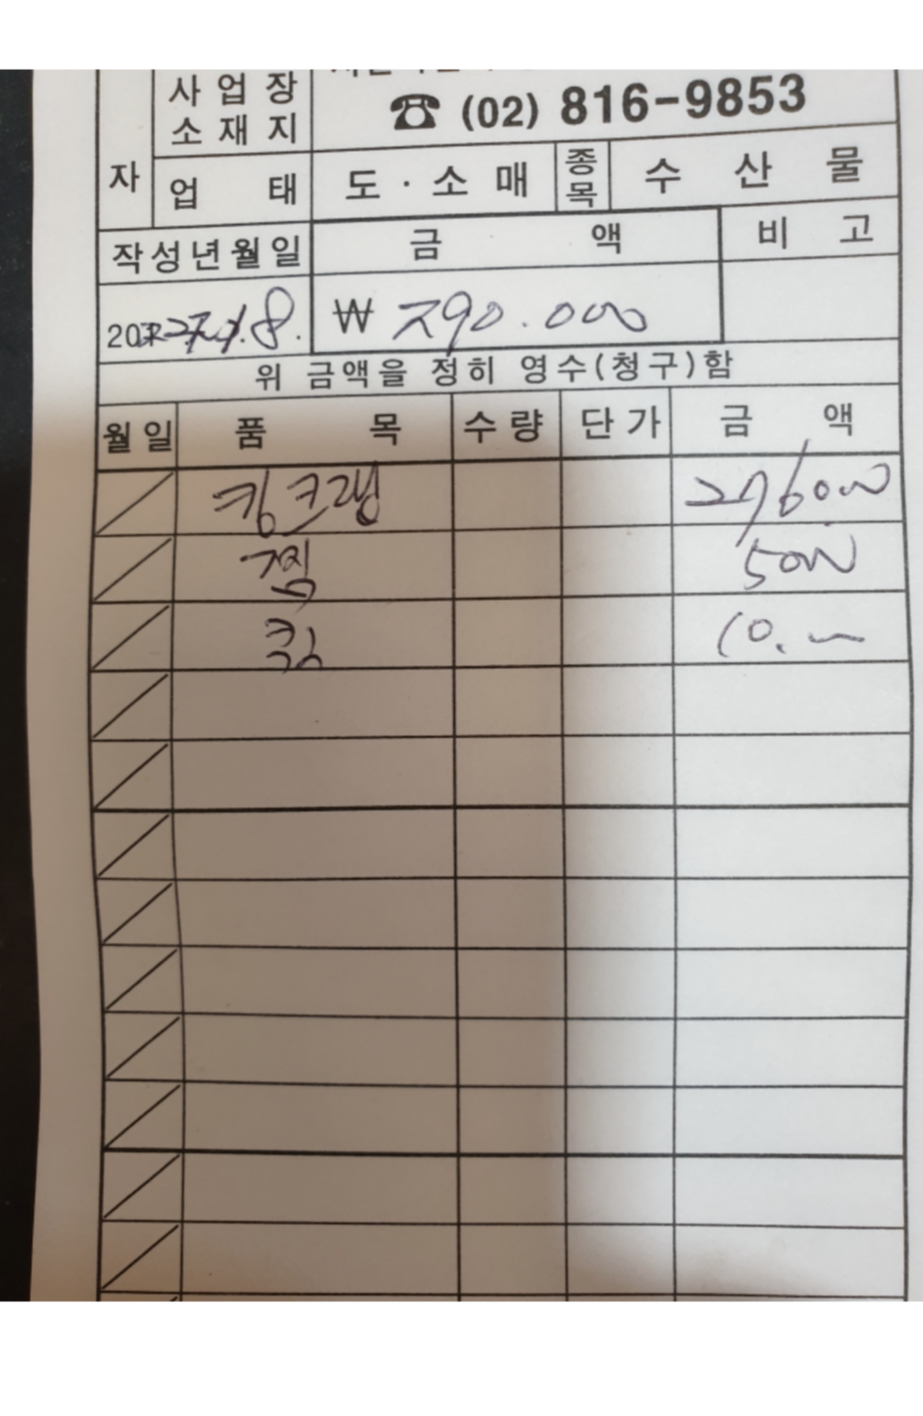 사업장
소재지
☎ (02) 816-9853
자
업 태 도·소매 종목 수산물
작성년월일 금 액 비 고
20 8. ₩ 290.000
위 금액을 정히 영수(청구)함
월일 품 목 수량 단가 금 액
킹크랩
찜 5000
킹 10.